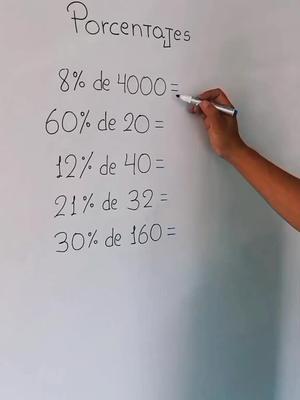 Porcentajes
8% de 4000=
60% de 20=
12% de 40=
21% de 32=
30% de 160=